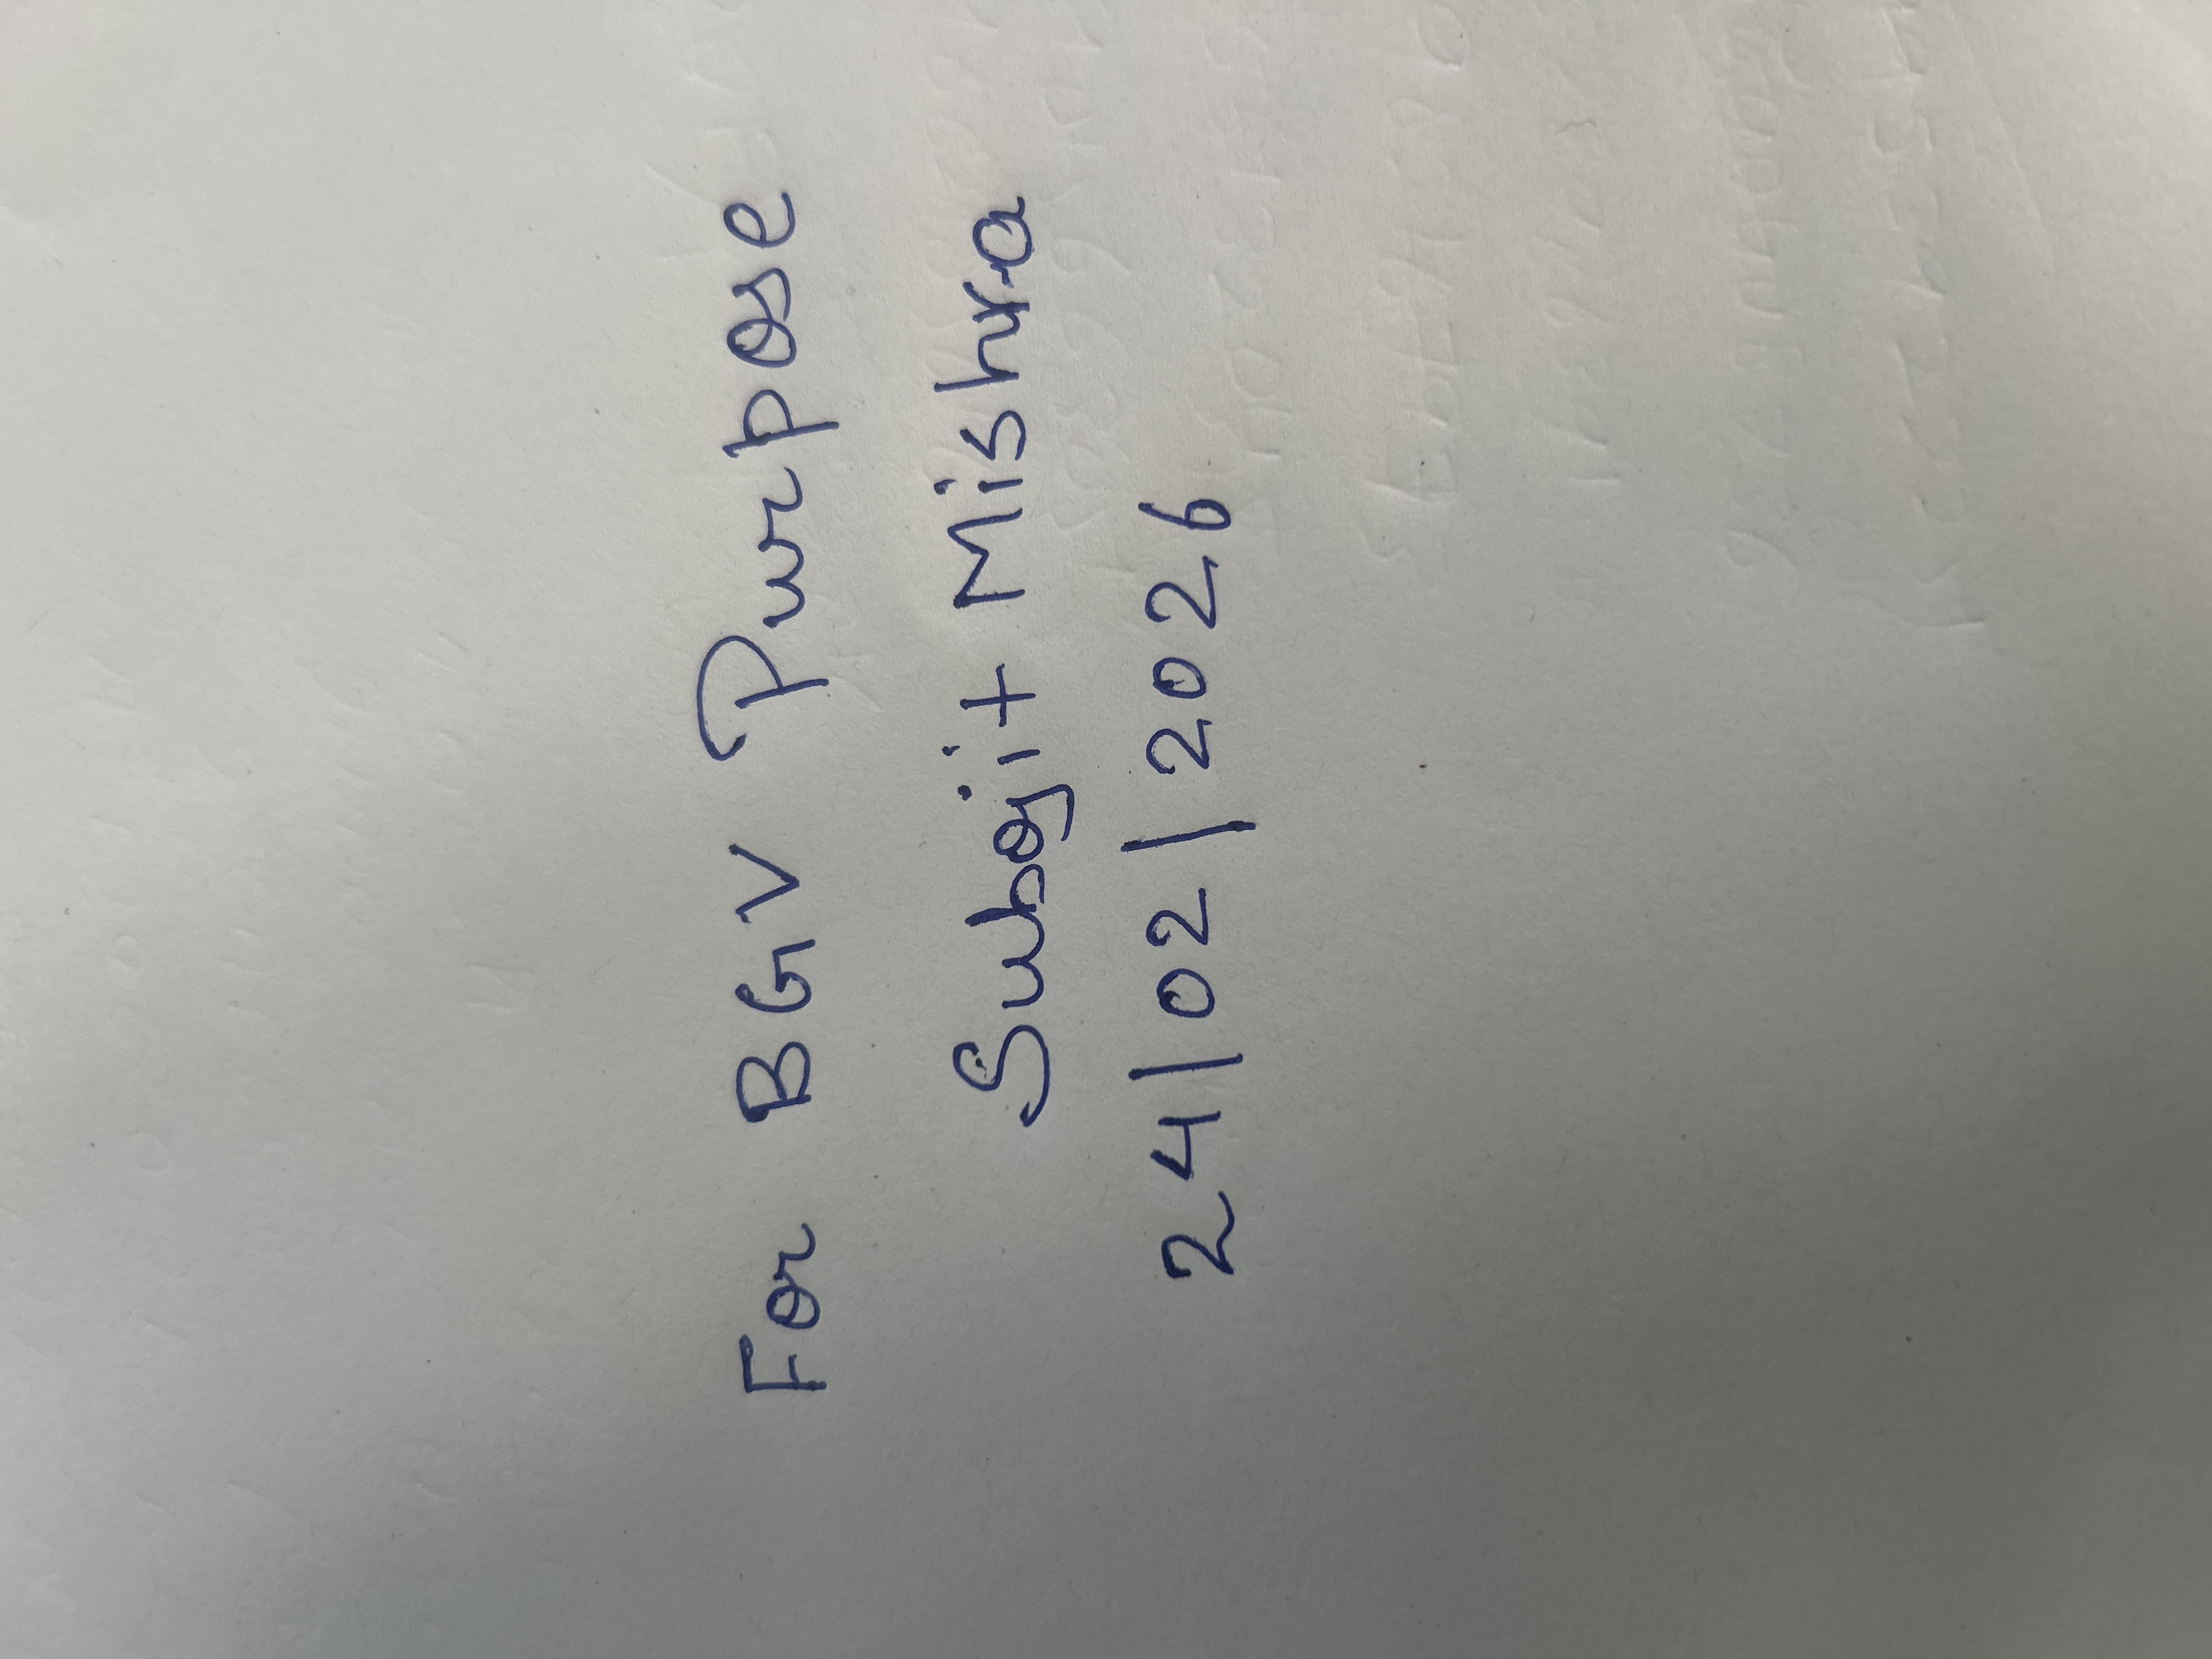 For BGV Purpose
Subojit Mishra
24/02/2026